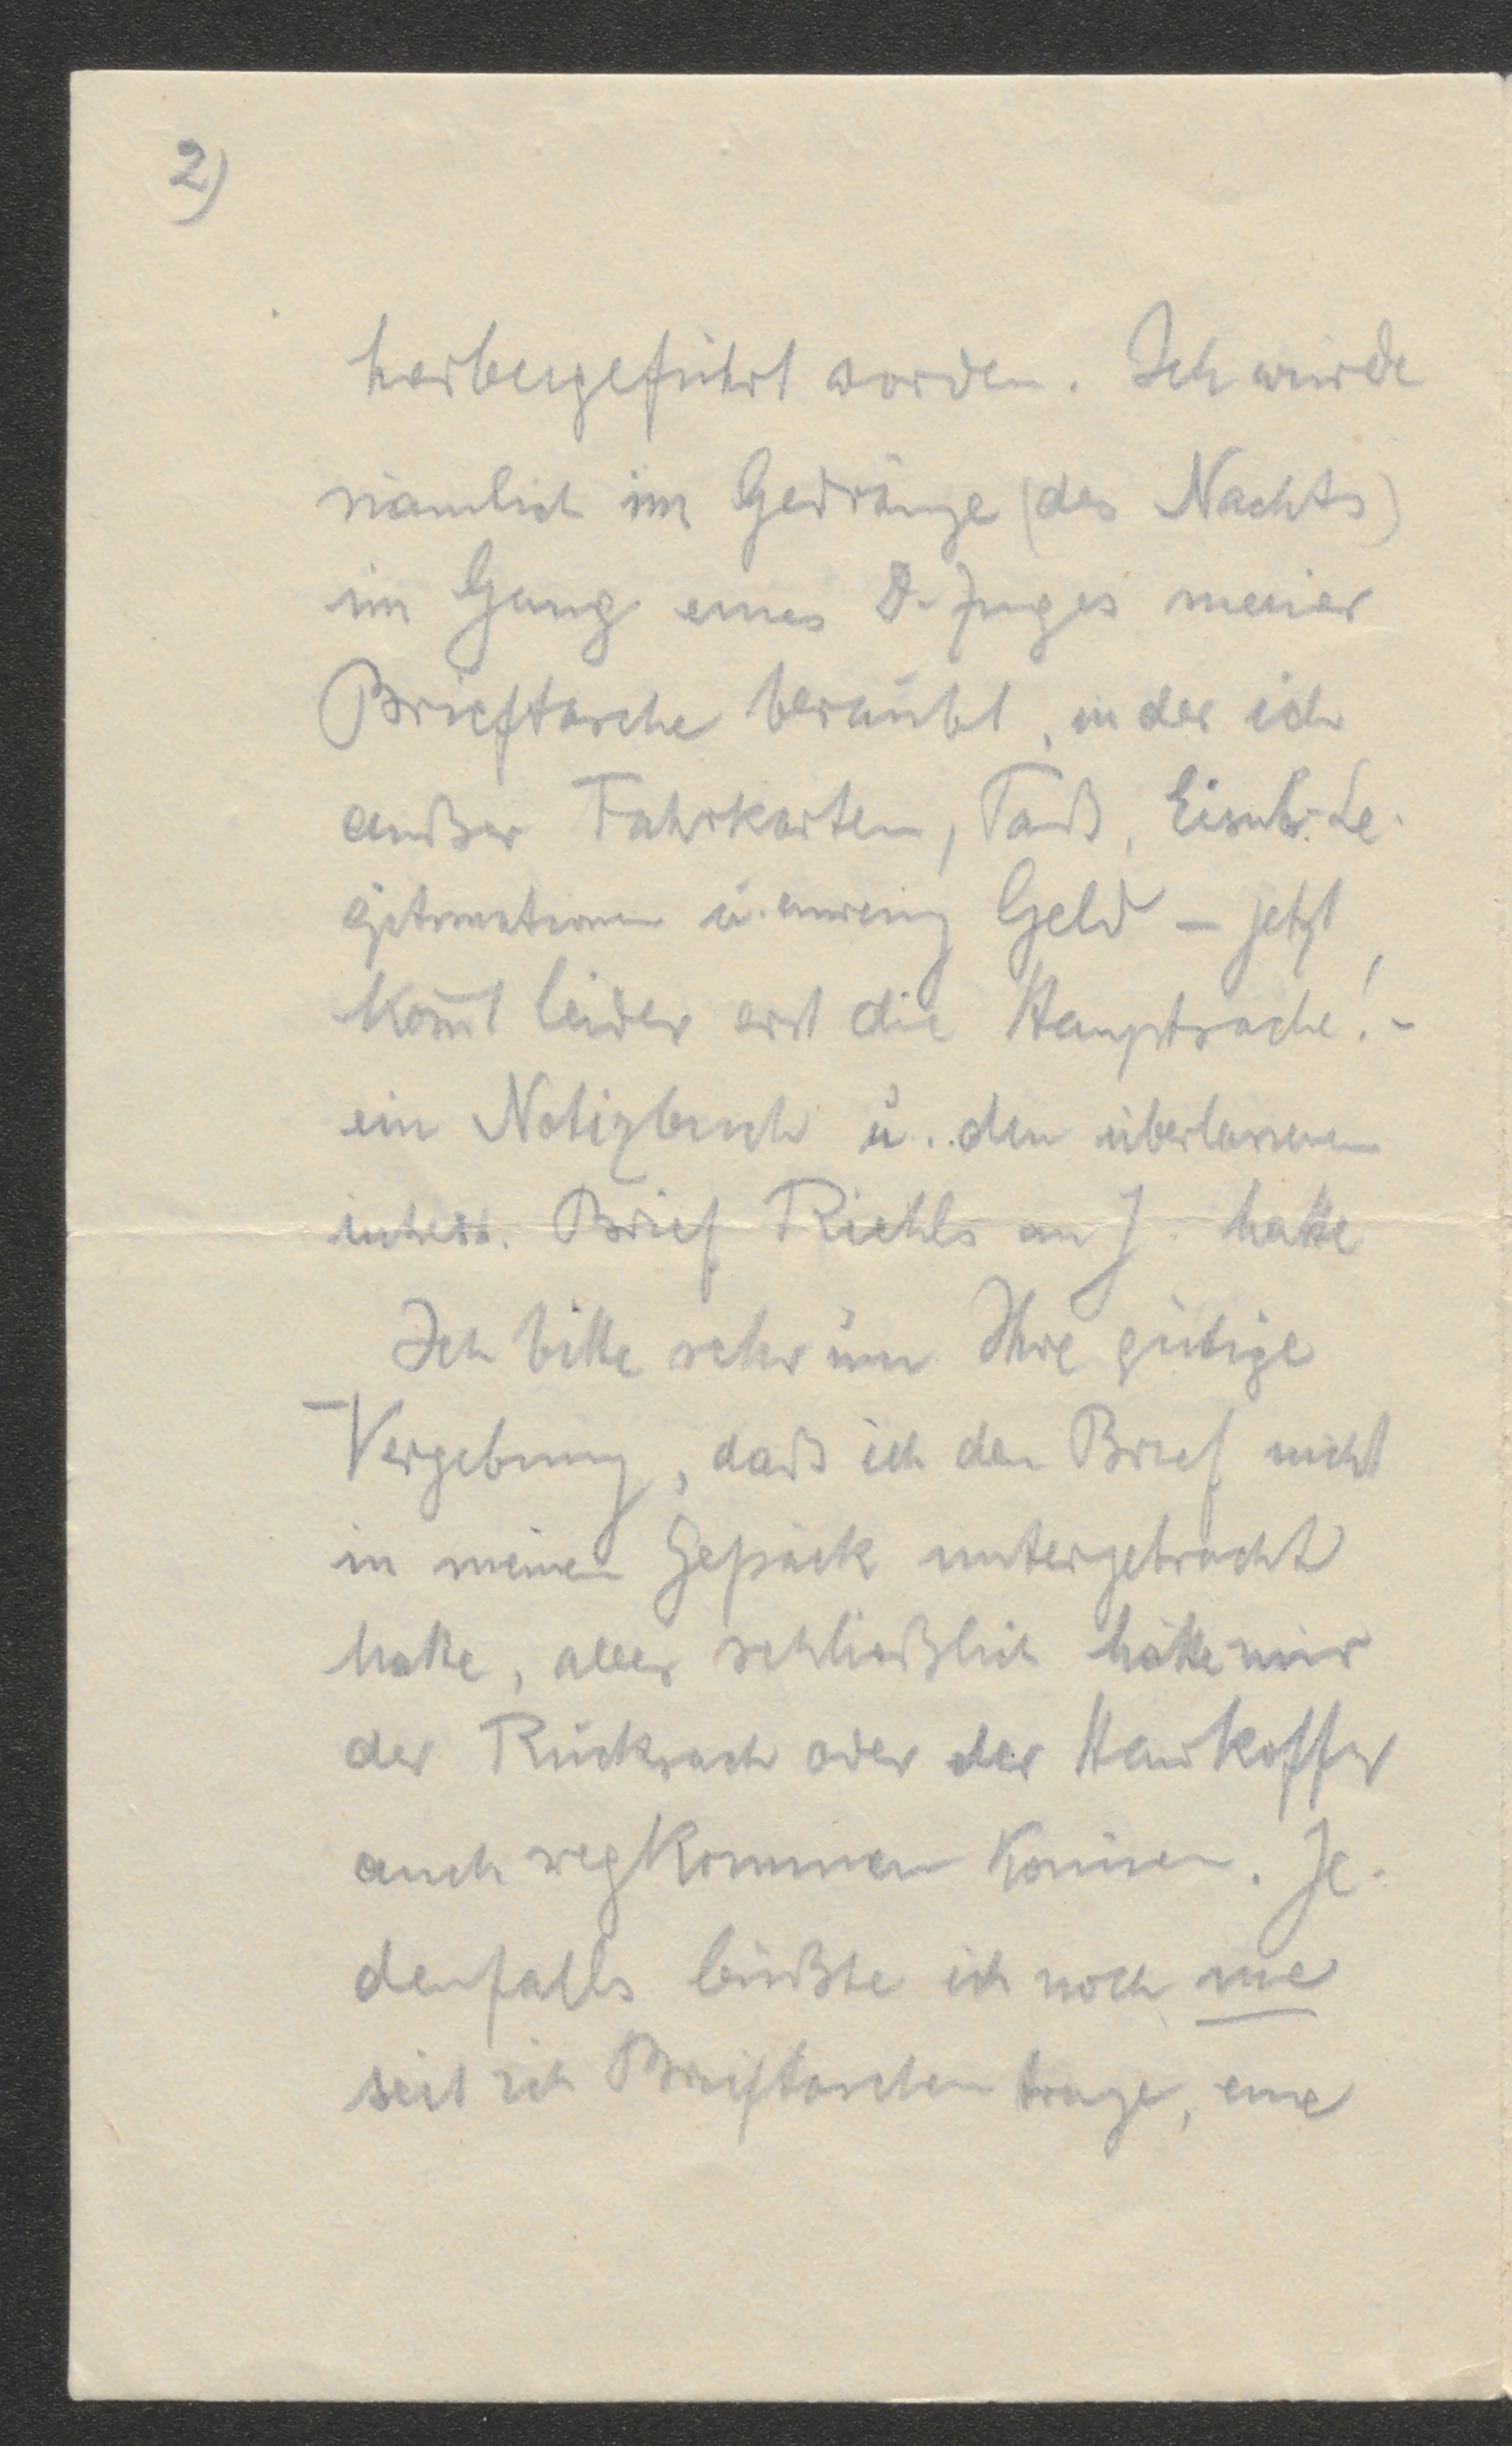 2)
herbeigeführt worden. Ich wurde
nämlich im Gedränge (des Nachts)
im Gang eines D-Zuges meiner
Brieftasche beraubt, in der ich
außer Fahrkarten, Paß, Eisenb. Le-
gitimationen u. ein wenig Geld – jetzt
kom̅t leider erst die Hauptsache! –
ein Notizbuch u. den überlassenen
interess. Brief Riehls an J. hatte
Ich bitte sehr um Ihre gütige
Vergebung, daß ich den Brief nicht
in meinem Gepäck untergebracht
hatte, aber schließlich hätte mir
der Rucksack oder der Handkoffer
auch wegkommen können. Je-
denfalls büßte ich noch nie
seit ich Brieftaschen trage, eine